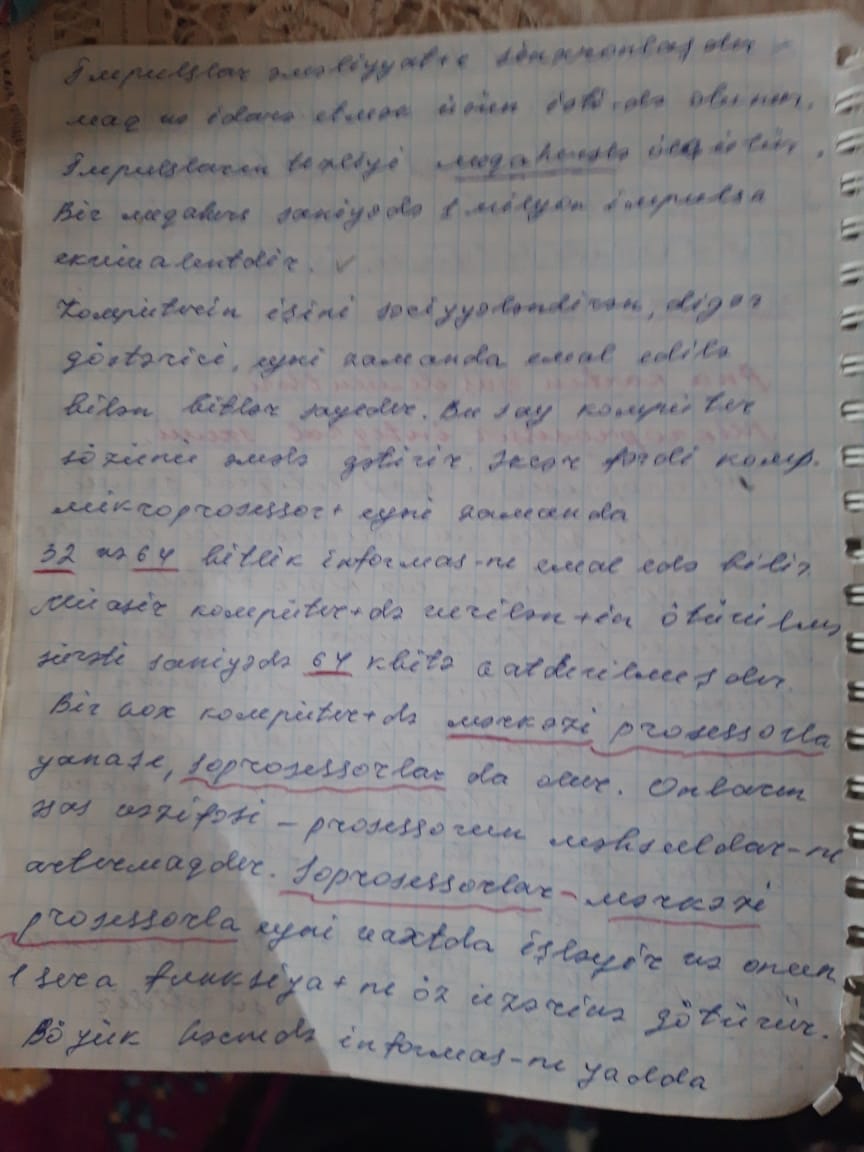 İmpulslar əməliyyat+ı sinxronlaşdır
maq və idarə etmək üçün isti-də olunur.
İmpulsların tezliyi meqaherslə ölçülür.
Bir meqahers saniyədə 1 milyon impulsa
ekvivalentdir.
Kompüterin işini səciyyələndirən, digər
göstərici, eyni zamanda emal edilə
bilən bitlər sayıdır. Bu say kompüter
sözünü əmələ gətirir. Əksər fərdi komp.
mikroprosessor+ eyni zamanda
32 və 64 bitlik informas-nı emal edə bilir
Müasir kompüter+də verilən+in ötürülmə
sürəti saniyədə 64 kbitə çatdırılmışdır.
Bir çox kompüter+də mərkəzi prosessorla
yanaşı, soprosessorlar da olur. Onların
əsas vəzifəsi - prosessorun məhsuldar-nı
artırmaqdır. Soprosessorlar - mərkəzi
prosessorla eyni vaxtda işləyir və onun
1 sıra funksiya+nı öz üzərinə götürür.
Böyük həcmdə informas-nı yadda